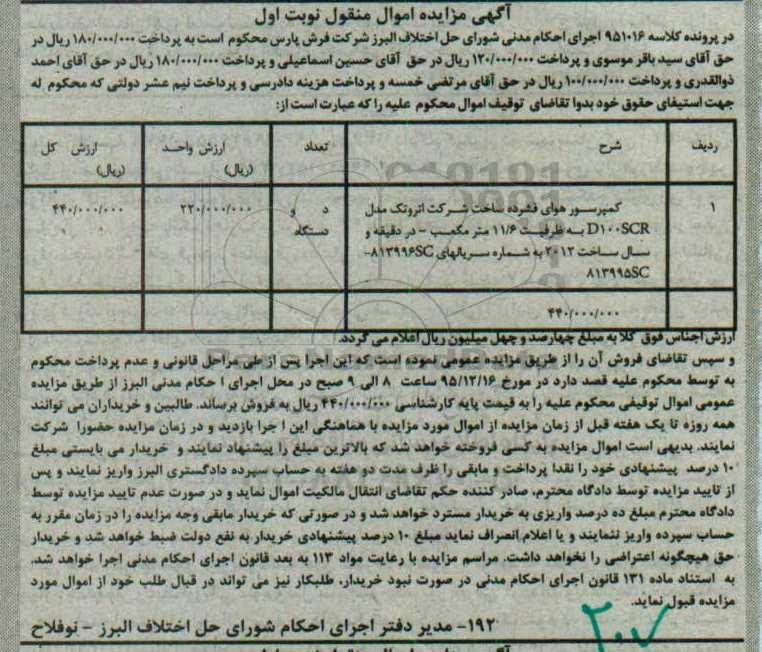 آگهی مزایده اموال منقول نوبت اول
در پرونده کلاسه ۹۵۱۰۱۶ اجرای احکام مدنی شورای حل اختلاف البرز شرکت فرش پارس محکوم است به پرداخت ۱۸۰/۰۰۰/۰۰۰ ریال در
حق آقای سید باقر موسوی و پرداخت ۱۲۰/۰۰۰/۰۰۰ ریال در حق آقای حسین اسماعیلی و پرداخت ۱۸۰/۰۰۰/۰۰۰ ریال در حق آقای احمد
ذوالقدری و پرداخت ۱۰۰/۰۰۰/۰۰۰ ریال در حق آقای مرتضی خمسه و پرداخت هزینه دادرسی و پرداخت نیم عشر دولتی که محکوم له
جهت استیفای حقوق خود بدوا تقاضای توقیف اموال محکوم علیه را که عبارت است از:
ردیف شرح تعداد ارزش واحد ارزش کل
(ریال) (ریال)
۱ کمپرسور هوای فشرده ساخت شرکت اتروتک مدل د و ۲۲۰/۰۰۰/۰۰۰ ۴۴۰/۰۰۰/۰۰۰
D۱۰۰SCR به ظرفیت ۱۱/۶ متر مکعب - در دقیقه و دستگاه
سال ساخت ۲۰۱۲ به شماره سریالهای ۸۱۳۹۹۶SC-
۸۱۳۹۹۵SC
۴۴۰/۰۰۰/۰۰۰
ارزش اجناس فوق کلا به مبلغ چهارصد و چهل میلیون ریال اعلام می گردد.
و سپس تقاضای فروش آن را از طریق مزایده عمومی نموده است که این اجرا پس از طی مراحل قانونی و عدم پرداخت محکوم
به توسط محکوم علیه قصد دارد در مورخ ۹۵/۱۲/۱۶ ساعت ۸ الی ۹ صبح در محل اجرای ا حکام مدنی البرز از طریق مزایده
عمومی اموال توقیفی محکوم علیه را به قیمت پایه کارشناسی ۴۴۰/۰۰۰/۰۰۰ ریال به فروش برساند. طالبین و خریداران می توانند
همه روزه تا یک هفته قبل از زمان مزایده از اموال مورد مزایده با هماهنگی این ا جرا بازدید و در زمان مزایده حضورا شرکت
نمایند. بدیهی است اموال مزایده به کسی فروخته خواهد شد که بالاترین مبلغ را پیشنهاد نمایند و خریدار می بایستی مبلغ
۱۰ درصد پیشنهادی خود را نقدا پرداخت و مابقی را ظرف مدت دو هفته به حساب سپرده دادگستری البرز واریز نمایند و پس
از تایید مزایده توسط دادگاه محترم، صادر کننده حکم تقاضای انتقال مالکیت اموال نماید و در صورت عدم تایید مزایده توسط
دادگاه محترم مبلغ ده درصد واریزی به خریدار مسترد خواهد شد و در صورتی که خریدار مابقی وجه مزایده را در زمان مقرر به
حساب سپرده واریز ننمایند و یا اعلام انصراف نماید مبلغ ۱۰ درصد پیشنهادی خریدار به نفع دولت ضبط خواهد شد و خریدار
حق هیچگونه اعتراضی را نخواهد داشت. مراسم مزایده با رعایت مواد ۱۱۳ به بعد قانون اجرای احکام مدنی اجرا خواهد شد.
به استناد ماده ۱۳۱ قانون اجرای احکام مدنی در صورت نبود خریدار، طلبکار نیز می تواند در قبال طلب خود از اموال مورد
مزایده قبول نماید.
۱۹۲- مدیر دفتر اجرای احکام شورای حل اختلاف البرز - نوفلاح